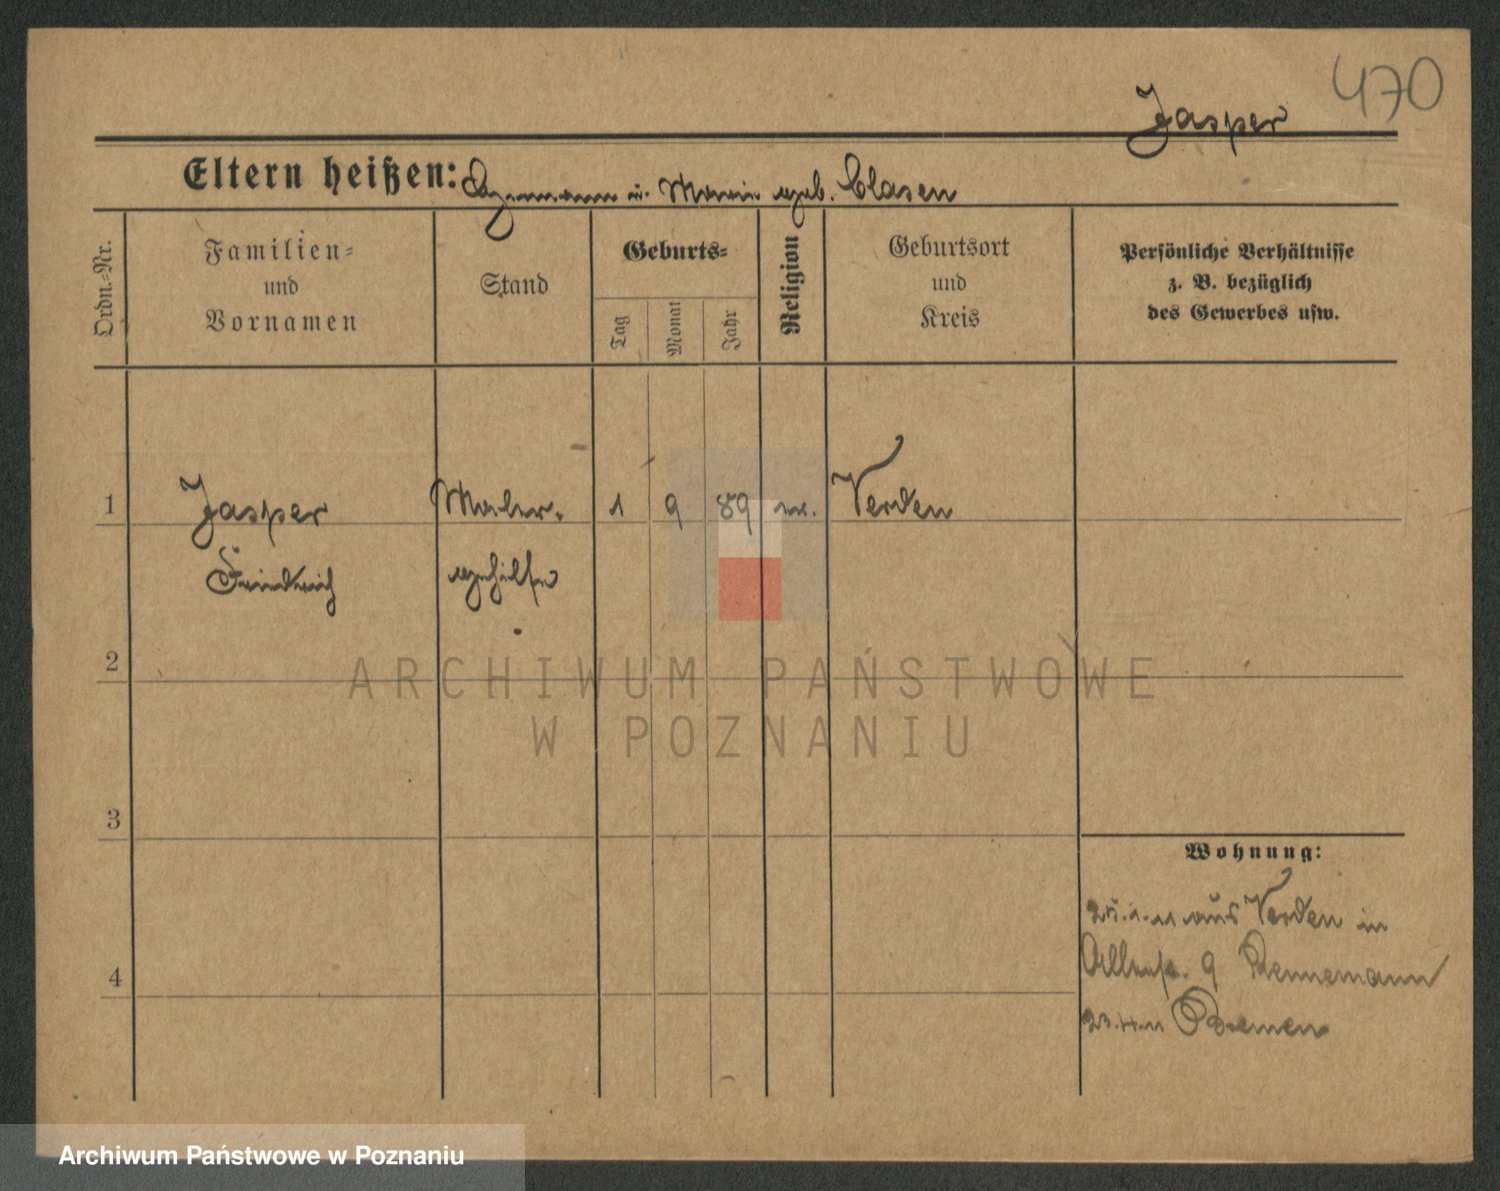 470
Jasper
Eltern heißen: Hermann u. Marie geb. Clasen
Ordn.-Nr.
Familien-
und
Vornamen
Stand
Geburts-
Tag
Monat
Jahr
Religion
Geburtsort
und
Kreis
Persönliche Verhältnisse
z. B. bezüglich
des Gewerbes usw.
1 Jasper Maler- 1 9 89 Verden
Friedrich gehilfe
2
3
4
Wohnung:
aus Verden in
9 Bennemann
Bremen
ARCHIWUM PAŃSTWOWE
W POZNANIU
Archiwum Państwowe w Poznaniu